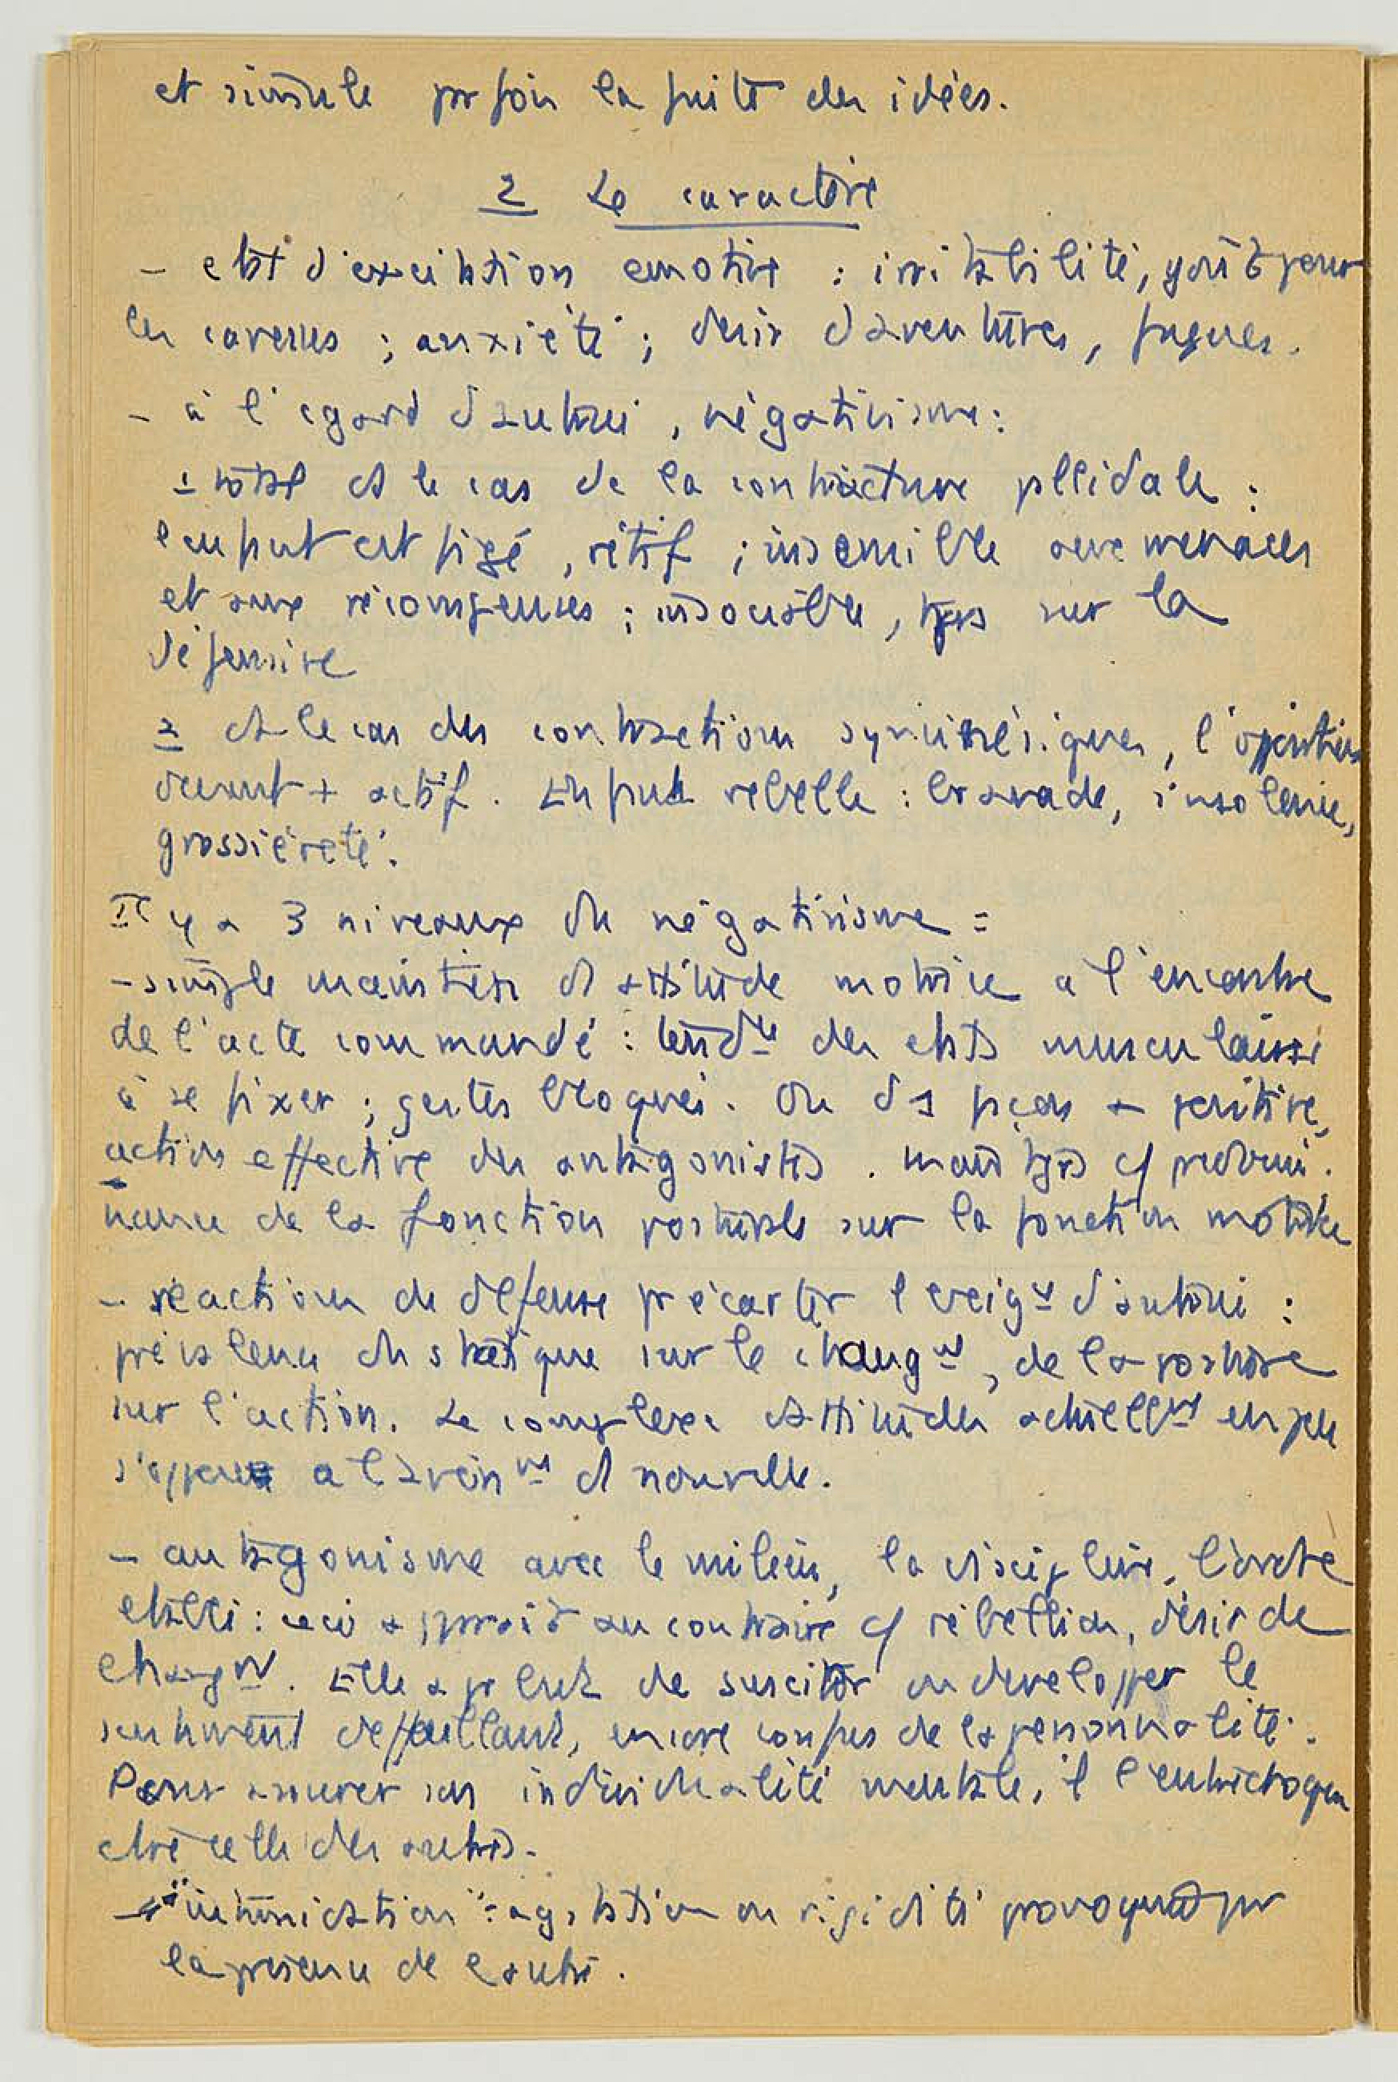 et simule parfois la fuite des idées.
2 Le caractère
- etat d'excitation emotive : irritabilité, goût pour
les caresses ; anxiété ; désir d'aventures, fugues.
- à l'égard d'autrui, négativisme :
1 ds le cas de la contracture pallidale :
l'enfant est figé, rétif ; insensible aux menaces
et aux récompenses ; insociable, tjrs sur la
défensive
2 ds le cas des contractions syncinésiques, l'opposition
devient + actif. Enfant rebelle : bravade, insolence,
grossièreté.
Il y a 3 niveaux du négativisme =
- simple maintien d'attitude motrice a l'encontre
de l'acte commandé : tendce des etats musculaires
à se fixer ; gestes bloqués. Ou ds 1 façon + positive,
action effective des antagonistes. mais tjrs c/ prédomi-
nance de la fonction posturale sur la fonction motrice
- réactions de défense pr écarter l'        d'autrui :
prévalence du statique sur le changt, de la posture
sur l'action. Le complexe d'attitudes actuellemt en jeu
s'oppose a l'avènmt d nouvelle.
- antagonisme avec le milieu, la discipline, l'ordre
établi : ceci apparaît au contraire c/ rébellion, désir de
changt. Elle a pr but de susciter ou developper le
sentiment défaillant, encore confus de la personnalité.
Pour assurer son individualité mentale, il l'entrechoque
avec celle des autres.
- "intimidation" : agitation ou rigidité provoquée par
la présence de l'autre.